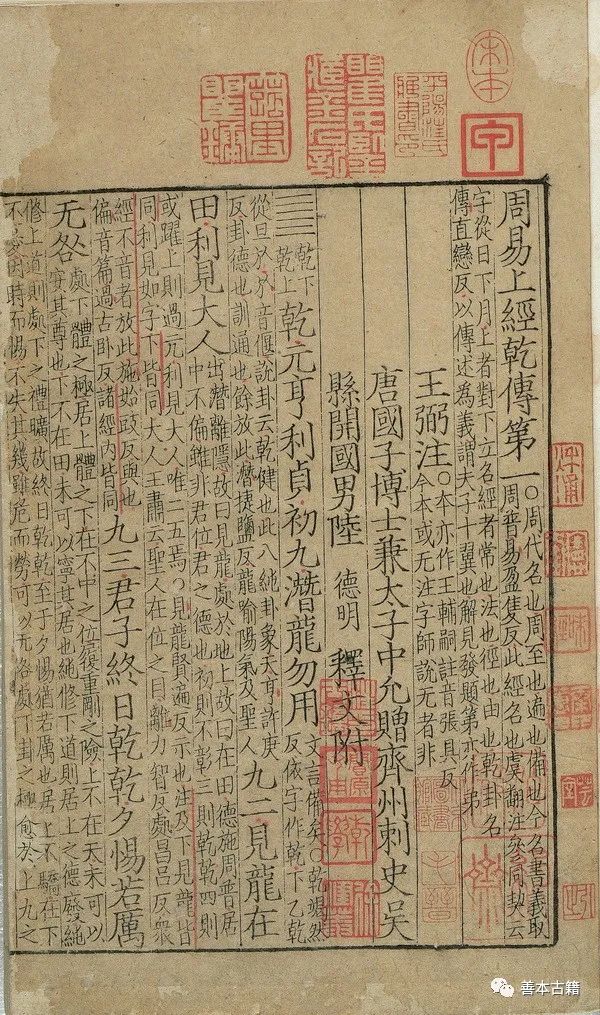 周易上經乾傳第一
〇周代名也周至也遍也備也今名書義取
周普易盈隻反此經名也虞翻注參同契云
字從日下月上者對下立名經者常也法也徑也由也乾卦名
傳直戀反以傳述為義謂夫子十翼也解見發題第亦作弟
王弼注
〇本亦作王輔嗣註音張具反
今本或无注字師說无者非
唐國子博士兼太子中允贈齊州刺史吳
縣開國男陸 德明 釋文附
䷀
乾下
乾上
乾元亨利貞初九潛龍勿用
文言備矣〇乾竭然
反依字作乾下乙乾
從旦㫃㫃音偃說卦云乾健也此八純卦象天亨許庚
反卦德也訓通也餘放此潛捷鹽反龍喻陽氣及聖人
九二見龍在
田利見大人
出潛離隱故曰見龍處於地上故曰在田德施周普居
中不偏雖非君位君之德也初則不彰三則乾乾四則
或躍上則過亢利見大人唯二五焉〇見龍賢遍反示也注及下見龍皆
同利見如字下皆同大人王肅云聖人在位之目離力智反處昌呂反衆
經不音者放此施始豉反與也
偏音篇過古臥反諸經內皆同
九三君子終日乾乾夕惕若厲
无咎
處下體之極居上體之下在不中之位履重剛之險上不在天未可以
安其尊也下不在田未可以寧其居也純修下道則居上之德廢純
修上道則處下之禮曠故終日乾乾至于夕惕猶若厲也居上不驕在下
不憂因時而惕不失其幾雖危而勞可以无咎處下卦之極愈於上九之
宋本
善本古籍